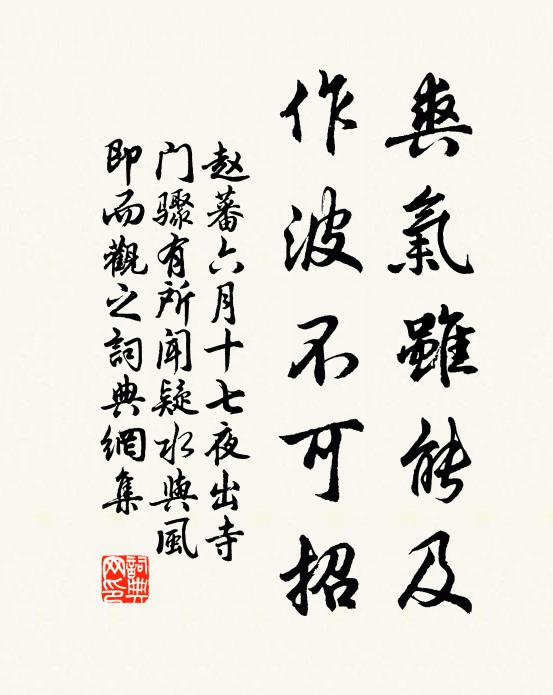 爽氣雖能及
作波不可招
赵蕃六月十七夜出寺
门骤有所闻疑水與風
即而觀之詞典網集
詞典
网印